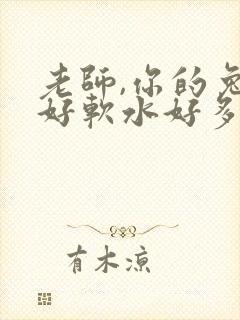 老師,你的兔
好軟水好多
有木涼